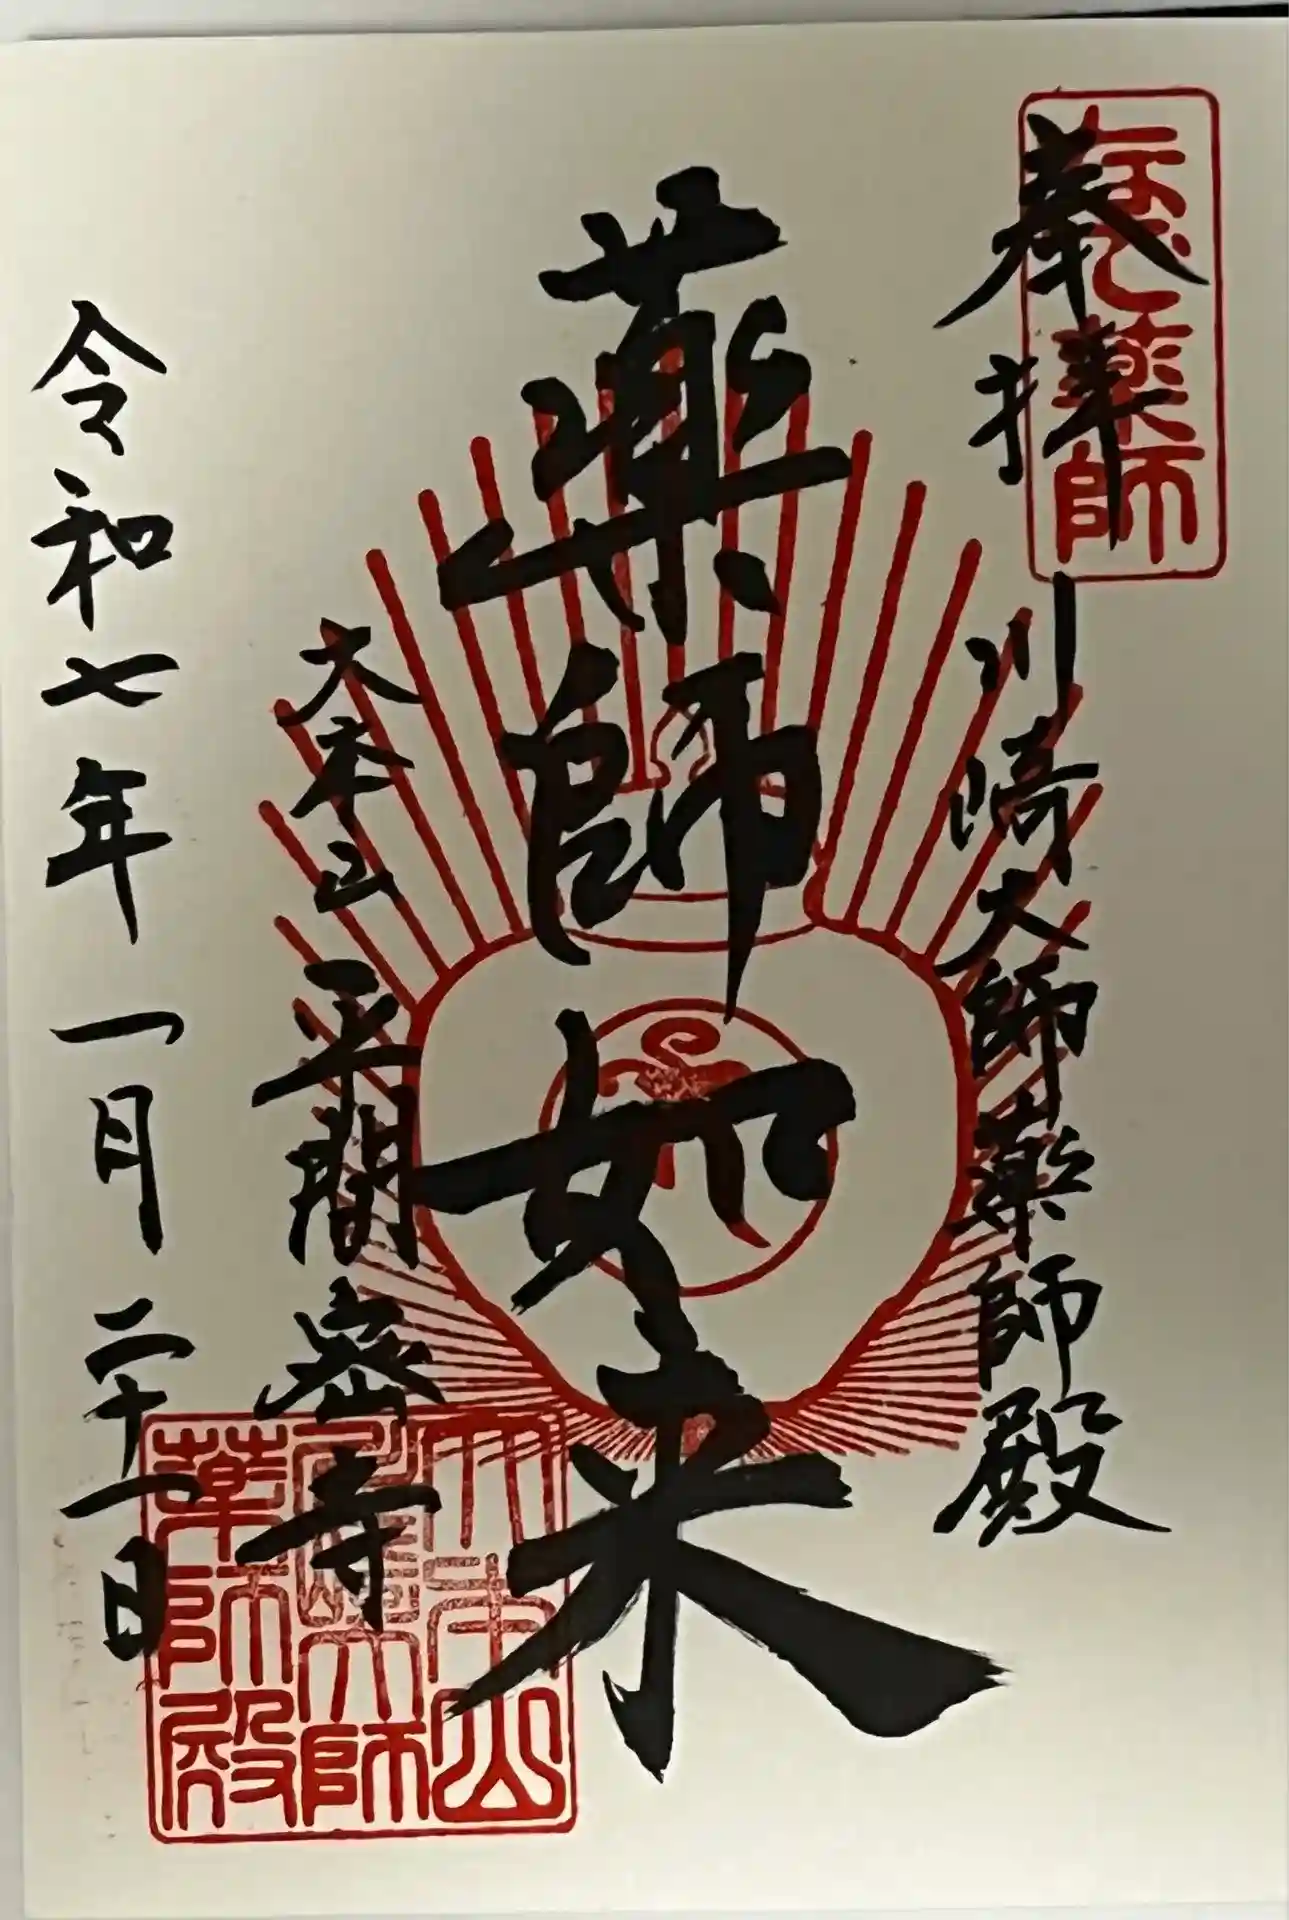 奉拝
川崎大師薬師殿
薬師如来
大本山
平間密寺
令和七年一月二十一日
薬師
大本山
川崎大師
薬師殿